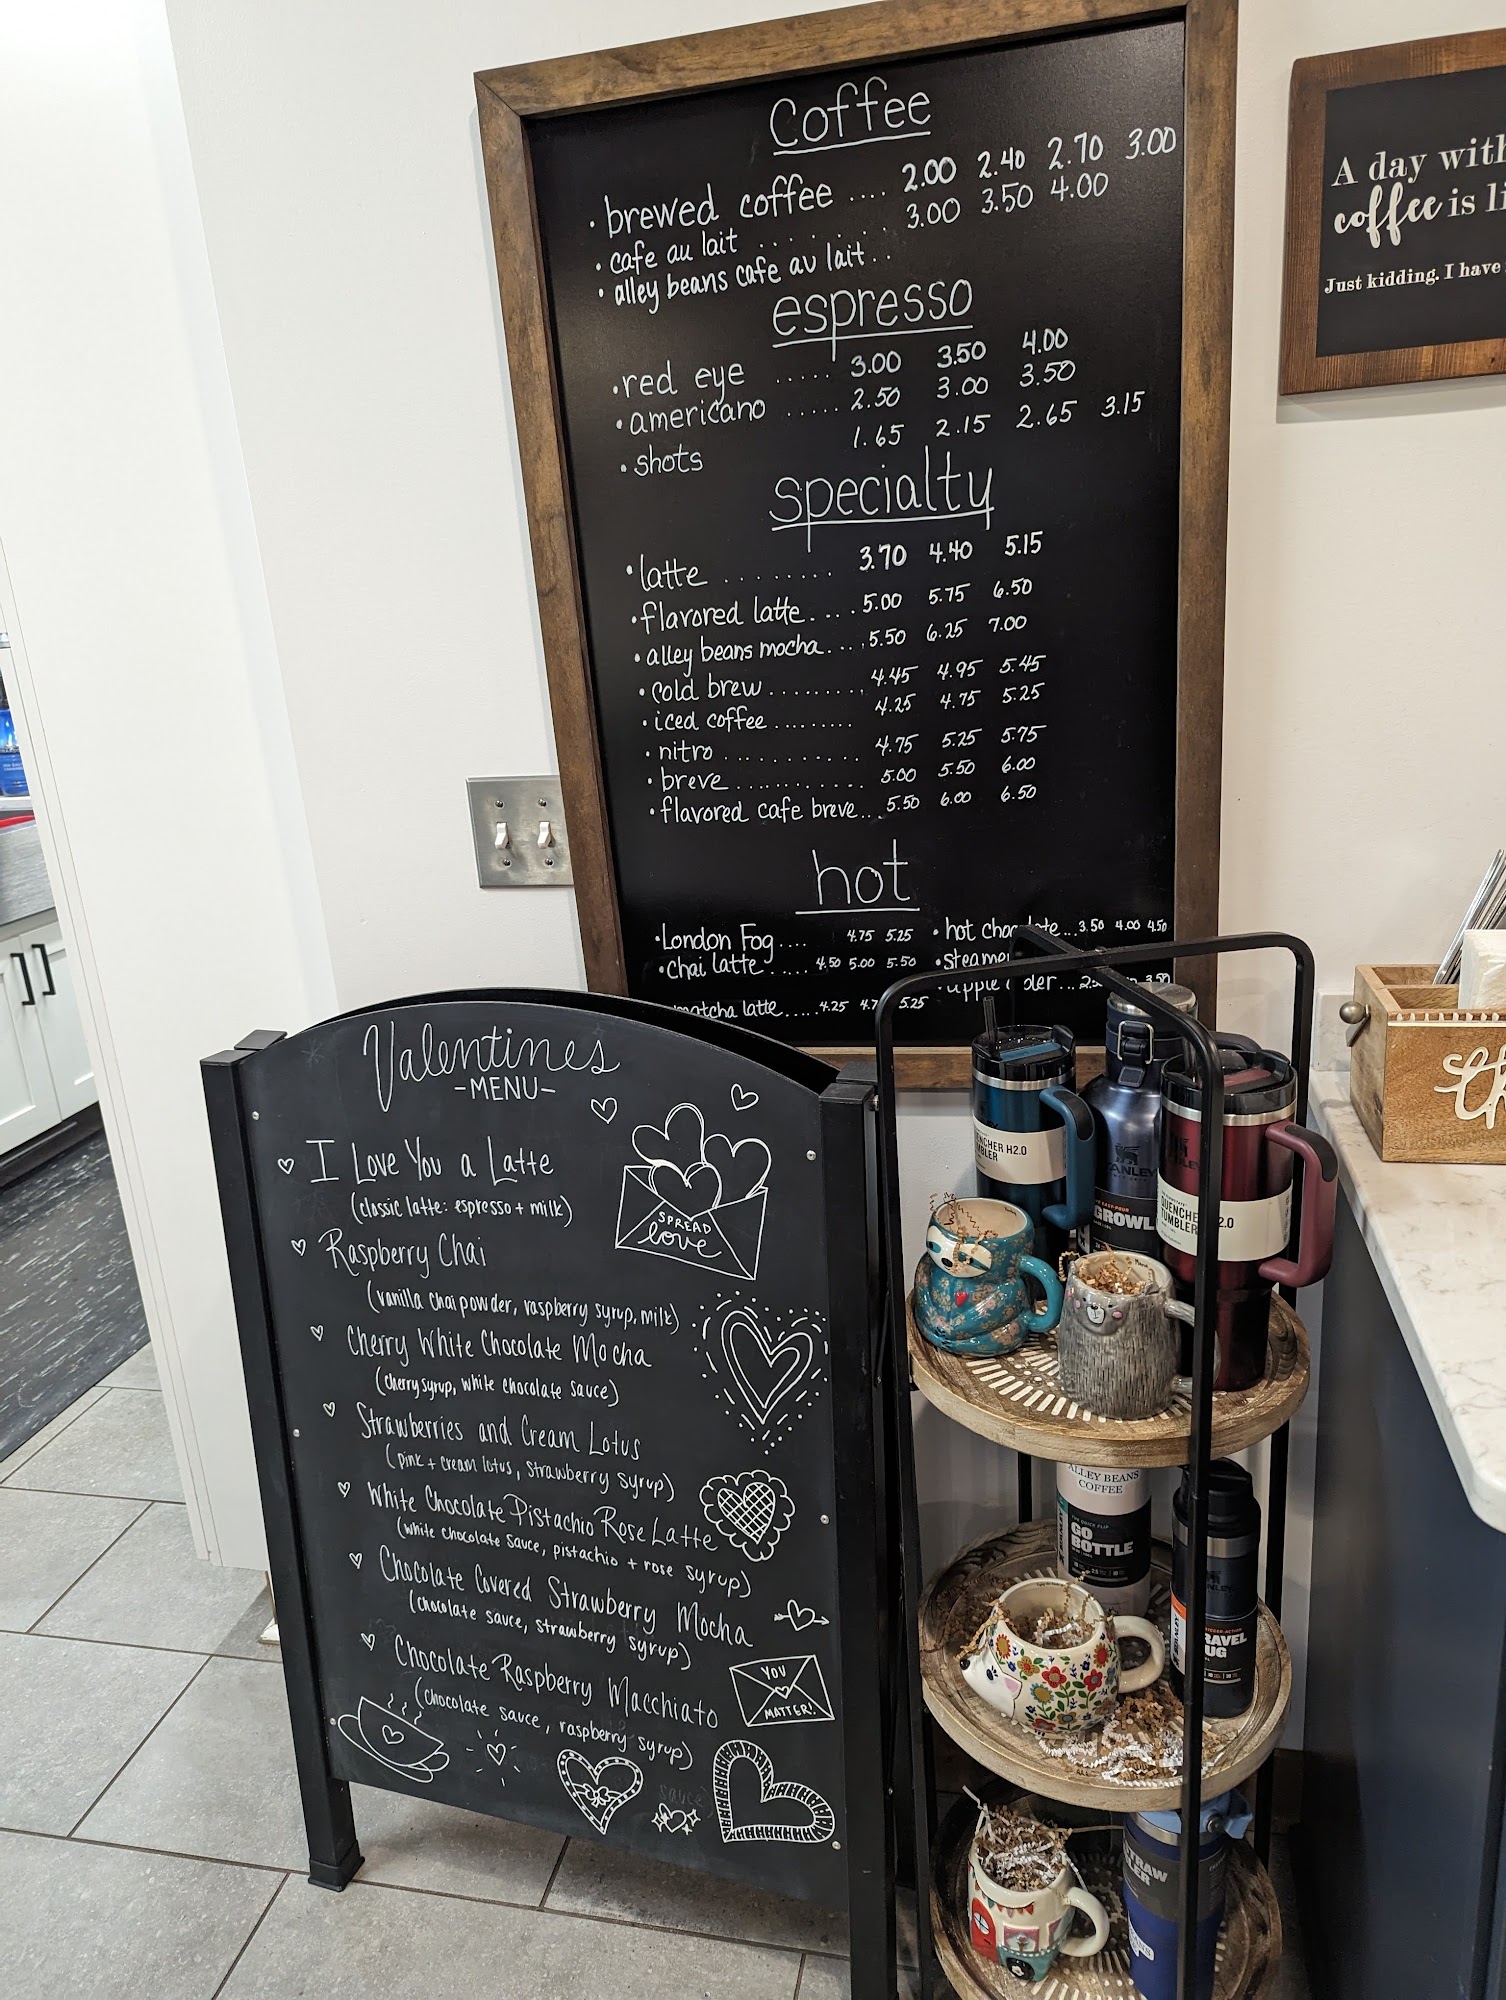 Coffee
• brewed coffee .... 2.00 2.40 2.70 3.00
• cafe au lait ........ 3.00 3.50 4.00
• alley beans cafe au lait ..
espresso
• red eye ..... 3.00 3.50 4.00
• americano ..... 2.50 3.00 3.50
• shots 1.65 2.15 2.65 3.15
specialty
• latte ........ 3.70 4.40 5.15
• flavored latte.... 5.00 5.75 6.50
• alley beans mocha.... 5.50 6.25 7.00
• cold brew ......... 4.45 4.95 5.45
• iced coffee ......... 4.25 4.75 5.25
• nitro .......... 4.75 5.25 5.75
• breve ............ 5.00 5.50 6.00
• flavored cafe breve... 5.50 6.00 6.50
hot
• London Fog .... 4.75 5.25
• chai latte ..... 4.50 5.00 5.50
matcha latte ..... 4.25 5.25
• hot ... 3.50 4.00 4.50
• apple ... 3.50
A day with
coffee is
Just kidding. I have
Valentines
-MENU-
♡ I Love You a Latte
(classic latte: espresso + milk)
♡ Raspberry Chai
(vanilla chai powder, raspberry syrup, milk)
♡ Cherry White Chocolate Mocha
(cherry syrup, white chocolate sauce)
♡ Strawberries and Cream Lotus
(pink + cream lotus, strawberry syrup)
♡ White Chocolate Pistachio Rose Latte
(white chocolate sauce, pistachio + rose syrup)
♡ Chocolate Covered Strawberry Mocha
(chocolate sauce, strawberry syrup)
♡ Chocolate Raspberry Macchiato
(chocolate sauce, raspberry syrup)
SPREAD
love
YOU
MATTER!
sauce
QUENCHER H2.0
TUMBLER
STANLEY
GROWL
QUENCHE 2.0
TUMBLER
ALLEY BEANS
COFFEE
GO
BOTTLE
STANLEY